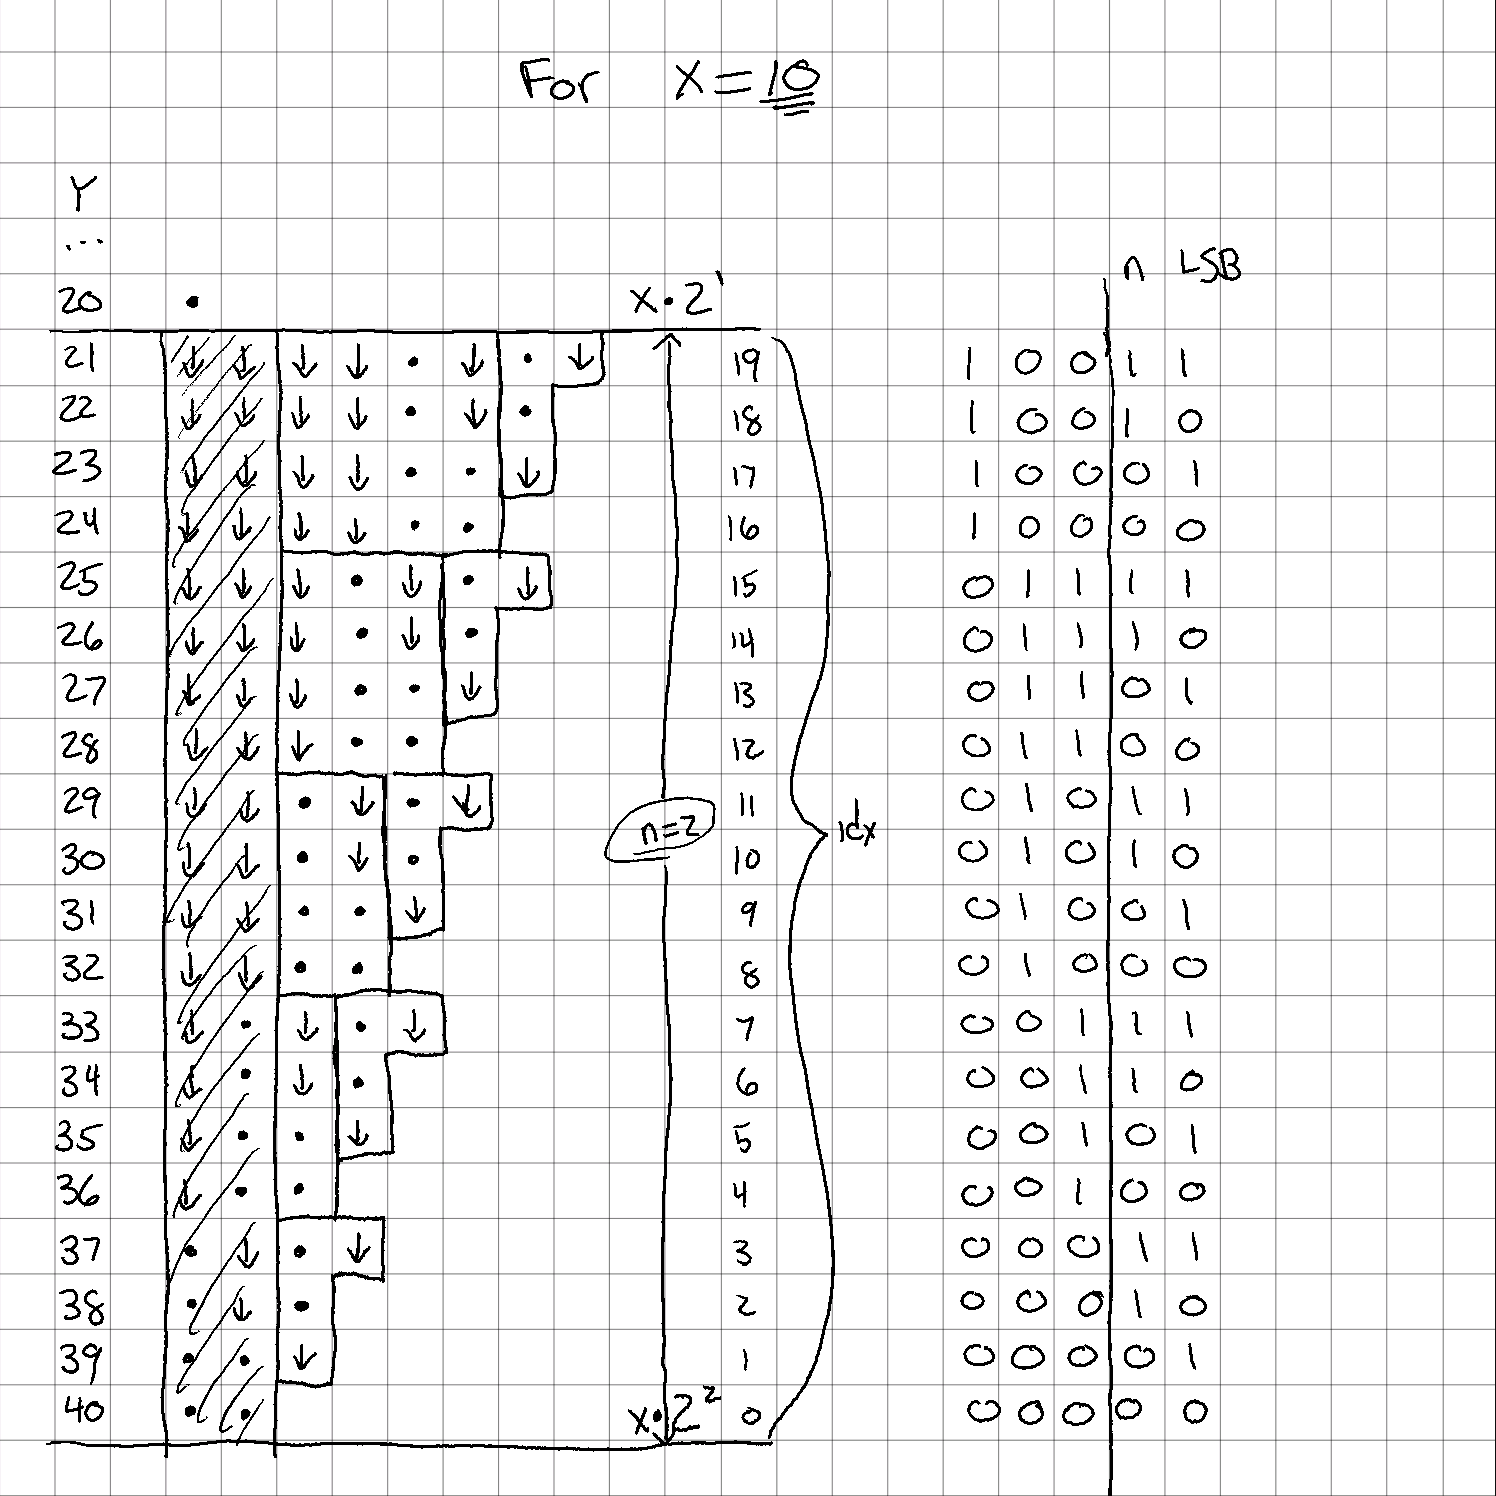 For X = 10
Y
...
n LSB
20 • X • 2¹
21 ↓ ↓ ↓ ↓ • ↓ • ↓ 19 1 0 0 1 1
22 ↓ ↓ ↓ ↓ • ↓ • 18 1 0 0 1 0
23 ↓ ↓ ↓ ↓ • • ↓ 17 1 0 0 0 1
24 ↓ ↓ ↓ ↓ • • 16 1 0 0 0 0
25 ↓ ↓ ↓ • ↓ • ↓ 15 0 1 1 1 1
26 ↓ ↓ ↓ • ↓ • 14 0 1 1 1 0
27 ↓ ↓ ↓ • • ↓ 13 0 1 1 0 1
28 ↓ ↓ ↓ • • 12 0 1 1 0 0
29 ↓ ↓ • ↓ • ↓ 11 0 1 0 1 1
n=2 idx
30 ↓ ↓ • ↓ • 10 0 1 0 1 0
31 ↓ ↓ • • ↓ 9 0 1 0 0 1
32 ↓ ↓ • • 8 0 1 0 0 0
33 ↓ • ↓ • ↓ 7 0 0 1 1 1
34 ↓ • ↓ • 6 0 0 1 1 0
35 ↓ • • ↓ 5 0 0 1 0 1
36 ↓ • • 4 0 0 1 0 0
37 • ↓ • ↓ 3 0 0 0 1 1
38 • ↓ • 2 0 0 0 1 0
39 • • ↓ 1 0 0 0 0 1
40 • • X • 2² 0 0 0 0 0 0